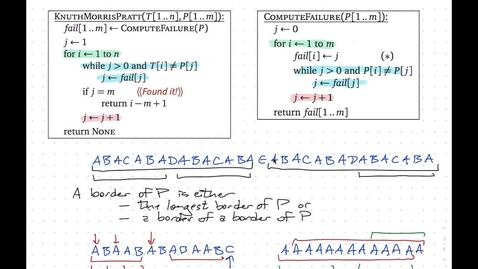 KNUTHMORRISPRATT(T[1..n], P[1..m]):
fail[1..m] ← COMPUTEFAILURE(P)
j ← 1
for i ← 1 to n
while j > 0 and T[i] ≠ P[j]
j ← fail[j]
if j = m ⟨⟨Found it!⟩⟩
return i − m + 1
j ← j + 1
return NONE
COMPUTEFAILURE(P[1..m]):
j ← 0
for i ← 1 to m
fail[i] ← j (∗)
while j > 0 and P[i] ≠ P[j]
j ← fail[j]
j ← j + 1
return fail[1..m]
ABACABADABACABA ABACABADABACABA
A border of P is either
– the longest border of P or
– a border of a border of P
ABAABABAABAABC AAAAAAAAAAAAA